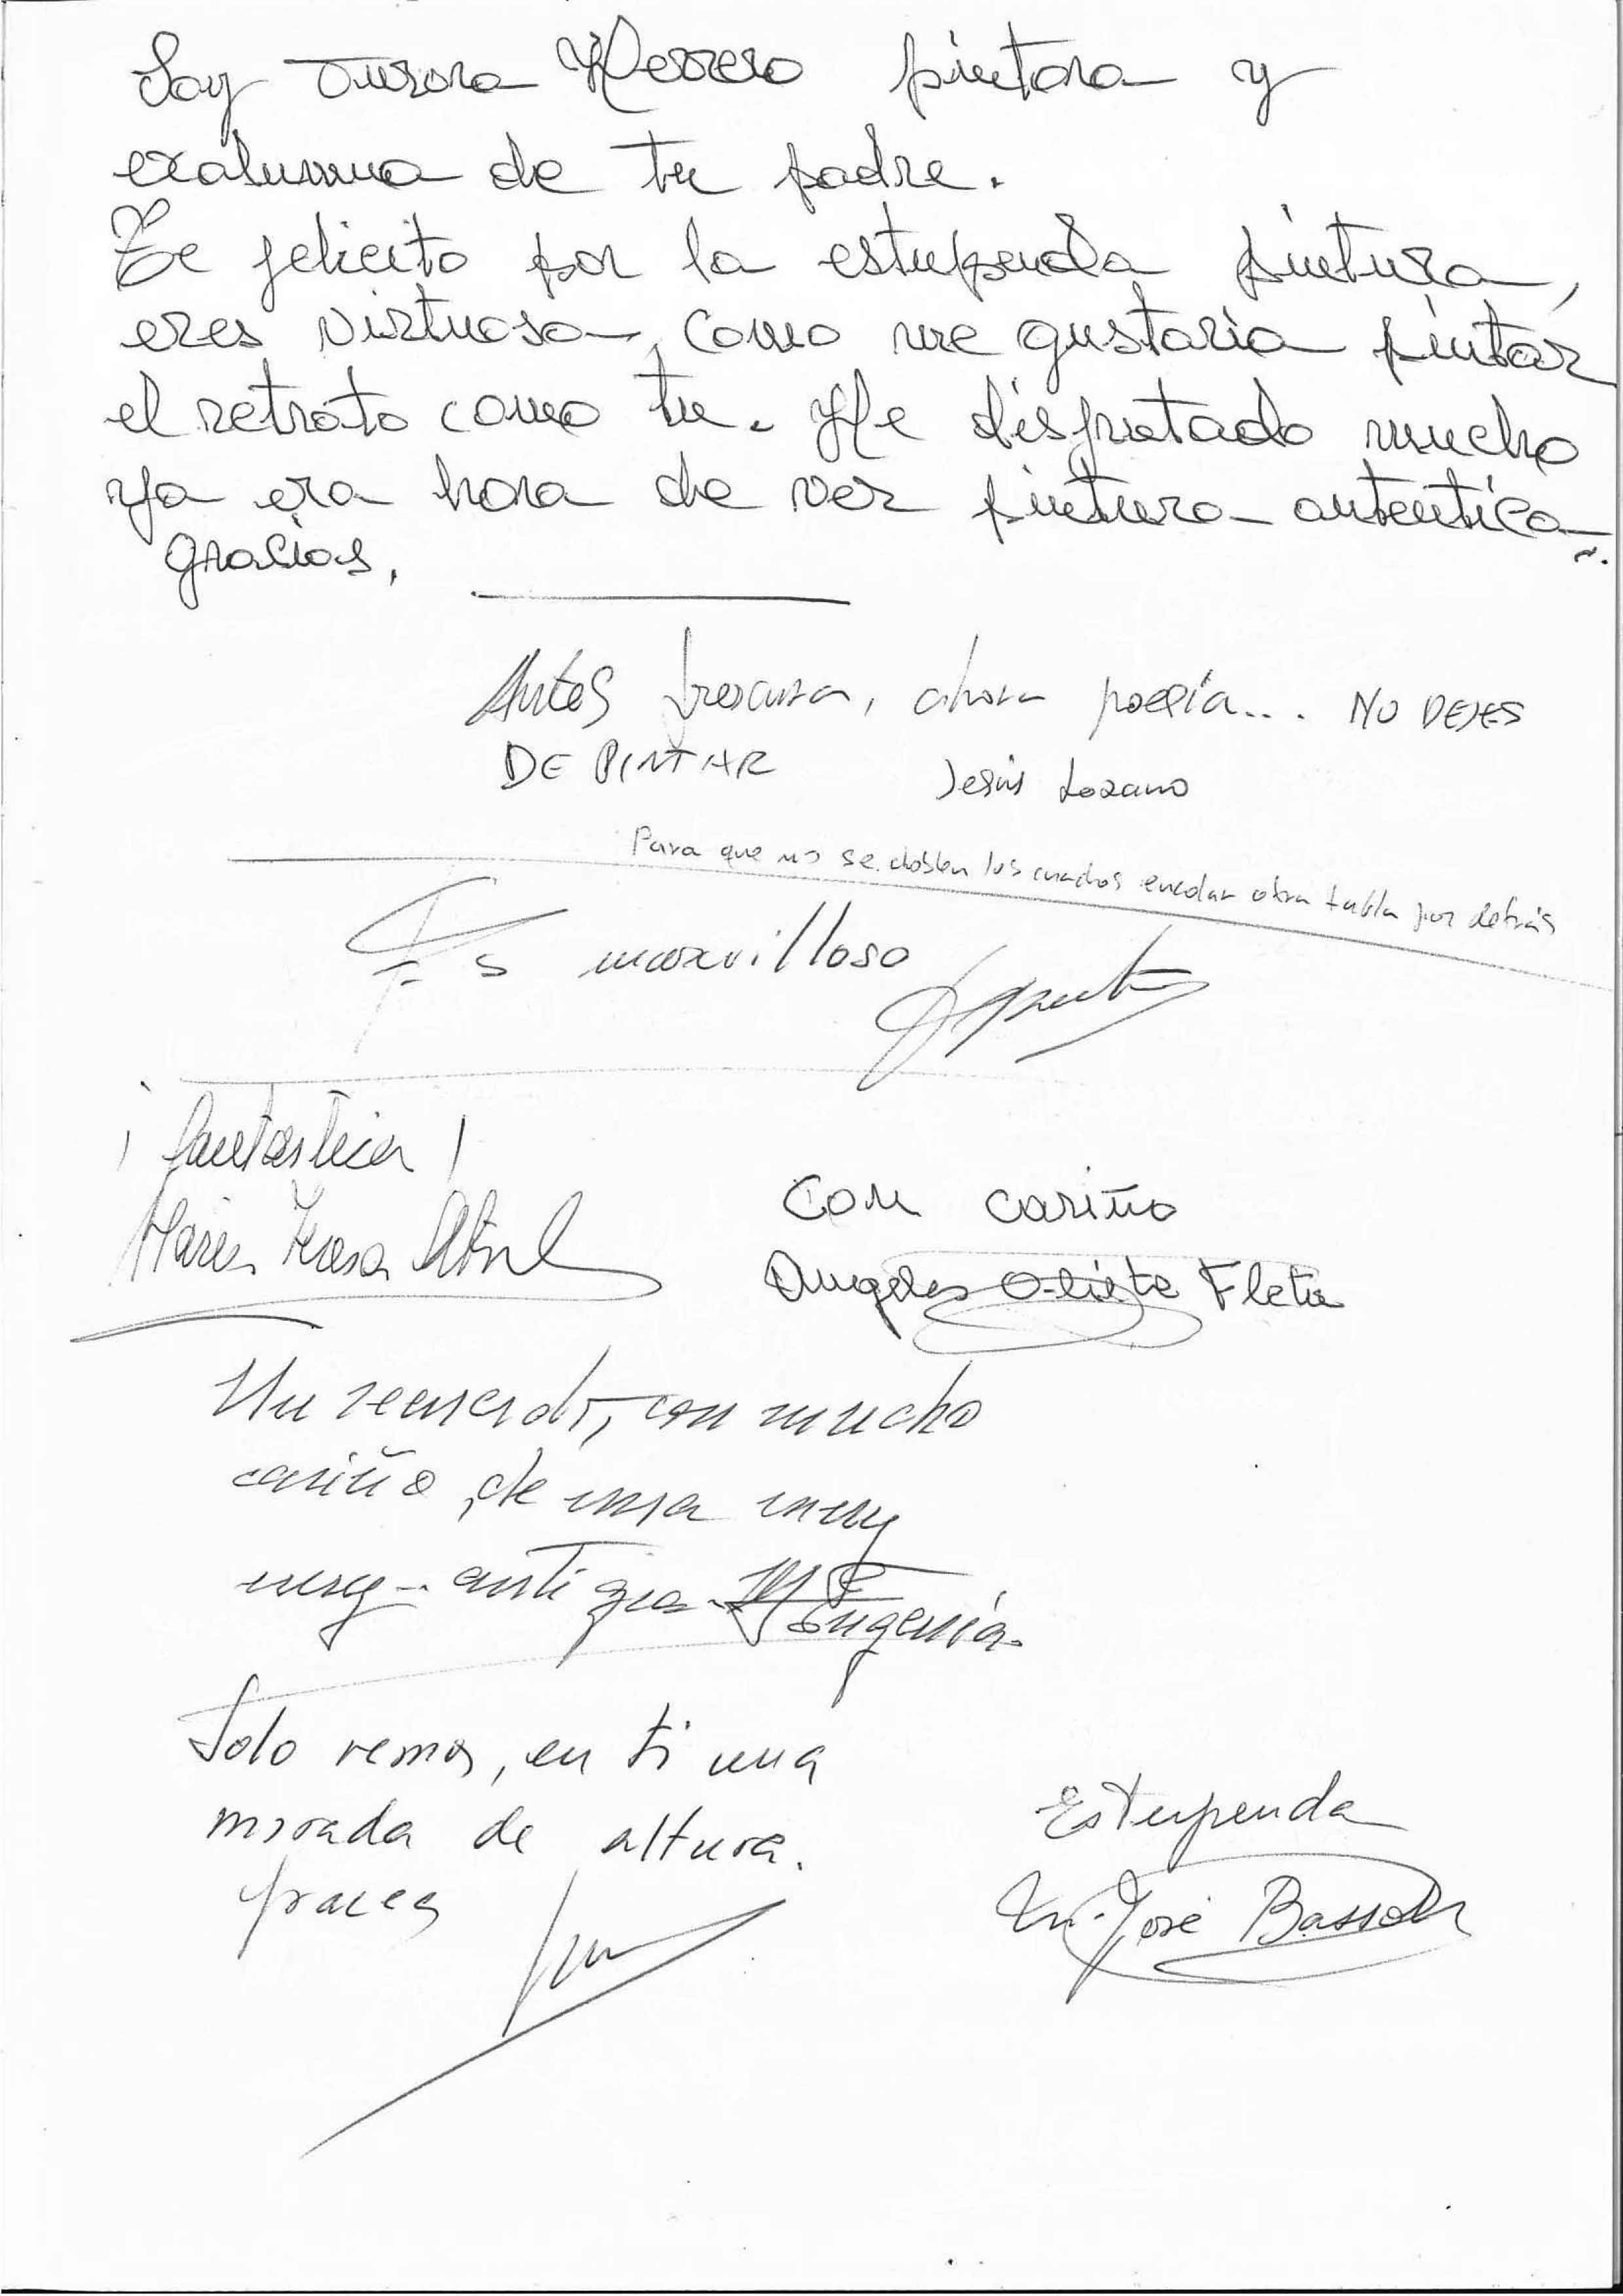 Soy Aurora Herrero pintora y
exalumna de tu padre.
Te felicito por la estupenda pintura,
eres virtuosa, como me gustaria pintar
el retrato como tu. He disfrutado mucho
ya era hora de ver pintura autentica.
Gracias,
Antes frescura, ahora poesía... NO DEJES
DE PINTAR Jesús Lozano
Para que no se doblen los cuadros encolar otra tabla por detrás
Es maravilloso
¡fantástica!
María Rosa
Con cariño
Angeles Oliete Fleta
Un recuerdo, con mucho
cariño, de una muy
muy-antigua Eugenia.
Solo vemos, en ti una
mirada de altura.
Gracias
Estupenda
Mª José